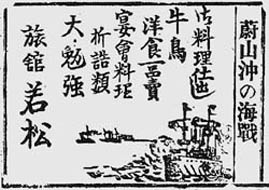 蔚山沖の海戰
御料理仕出
牛鳥
洋食一品賣
宴會料理
折詰類
大勉強
旅舘 若松